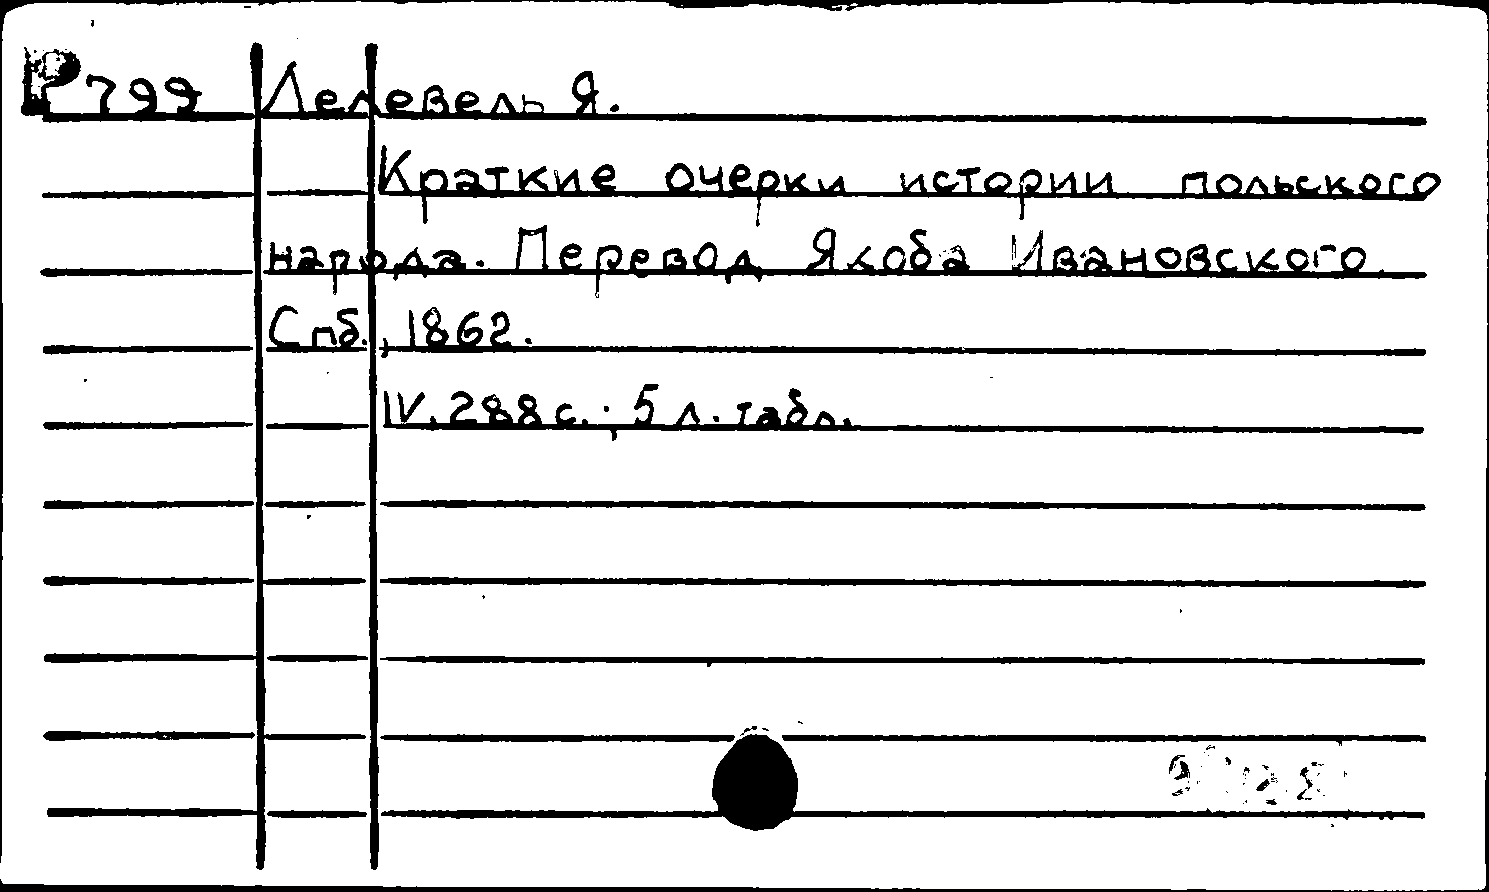 Р799 Лелевель Я.
Краткие очерки истории польского
народа. Перевод Якоба Ивановского
Спб., 1862.
IV. 288 с.; 5 л. табл.